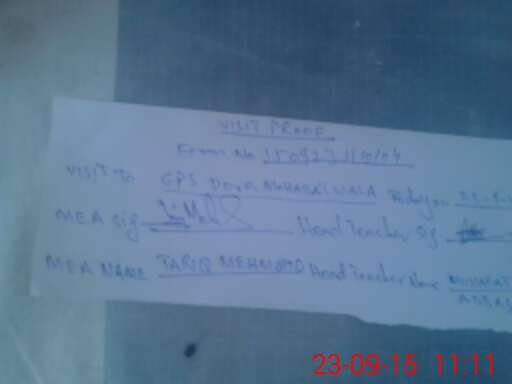 VISIT PROOF
Form No 150923111004
VISIT to GPS Dera MOHABAT WALA Today on
MEA Sig Head Teacher Sig
MEA NAME TARIQ MEHMOOD Head Teacher Name
ABBAS
23-09-15 11:11